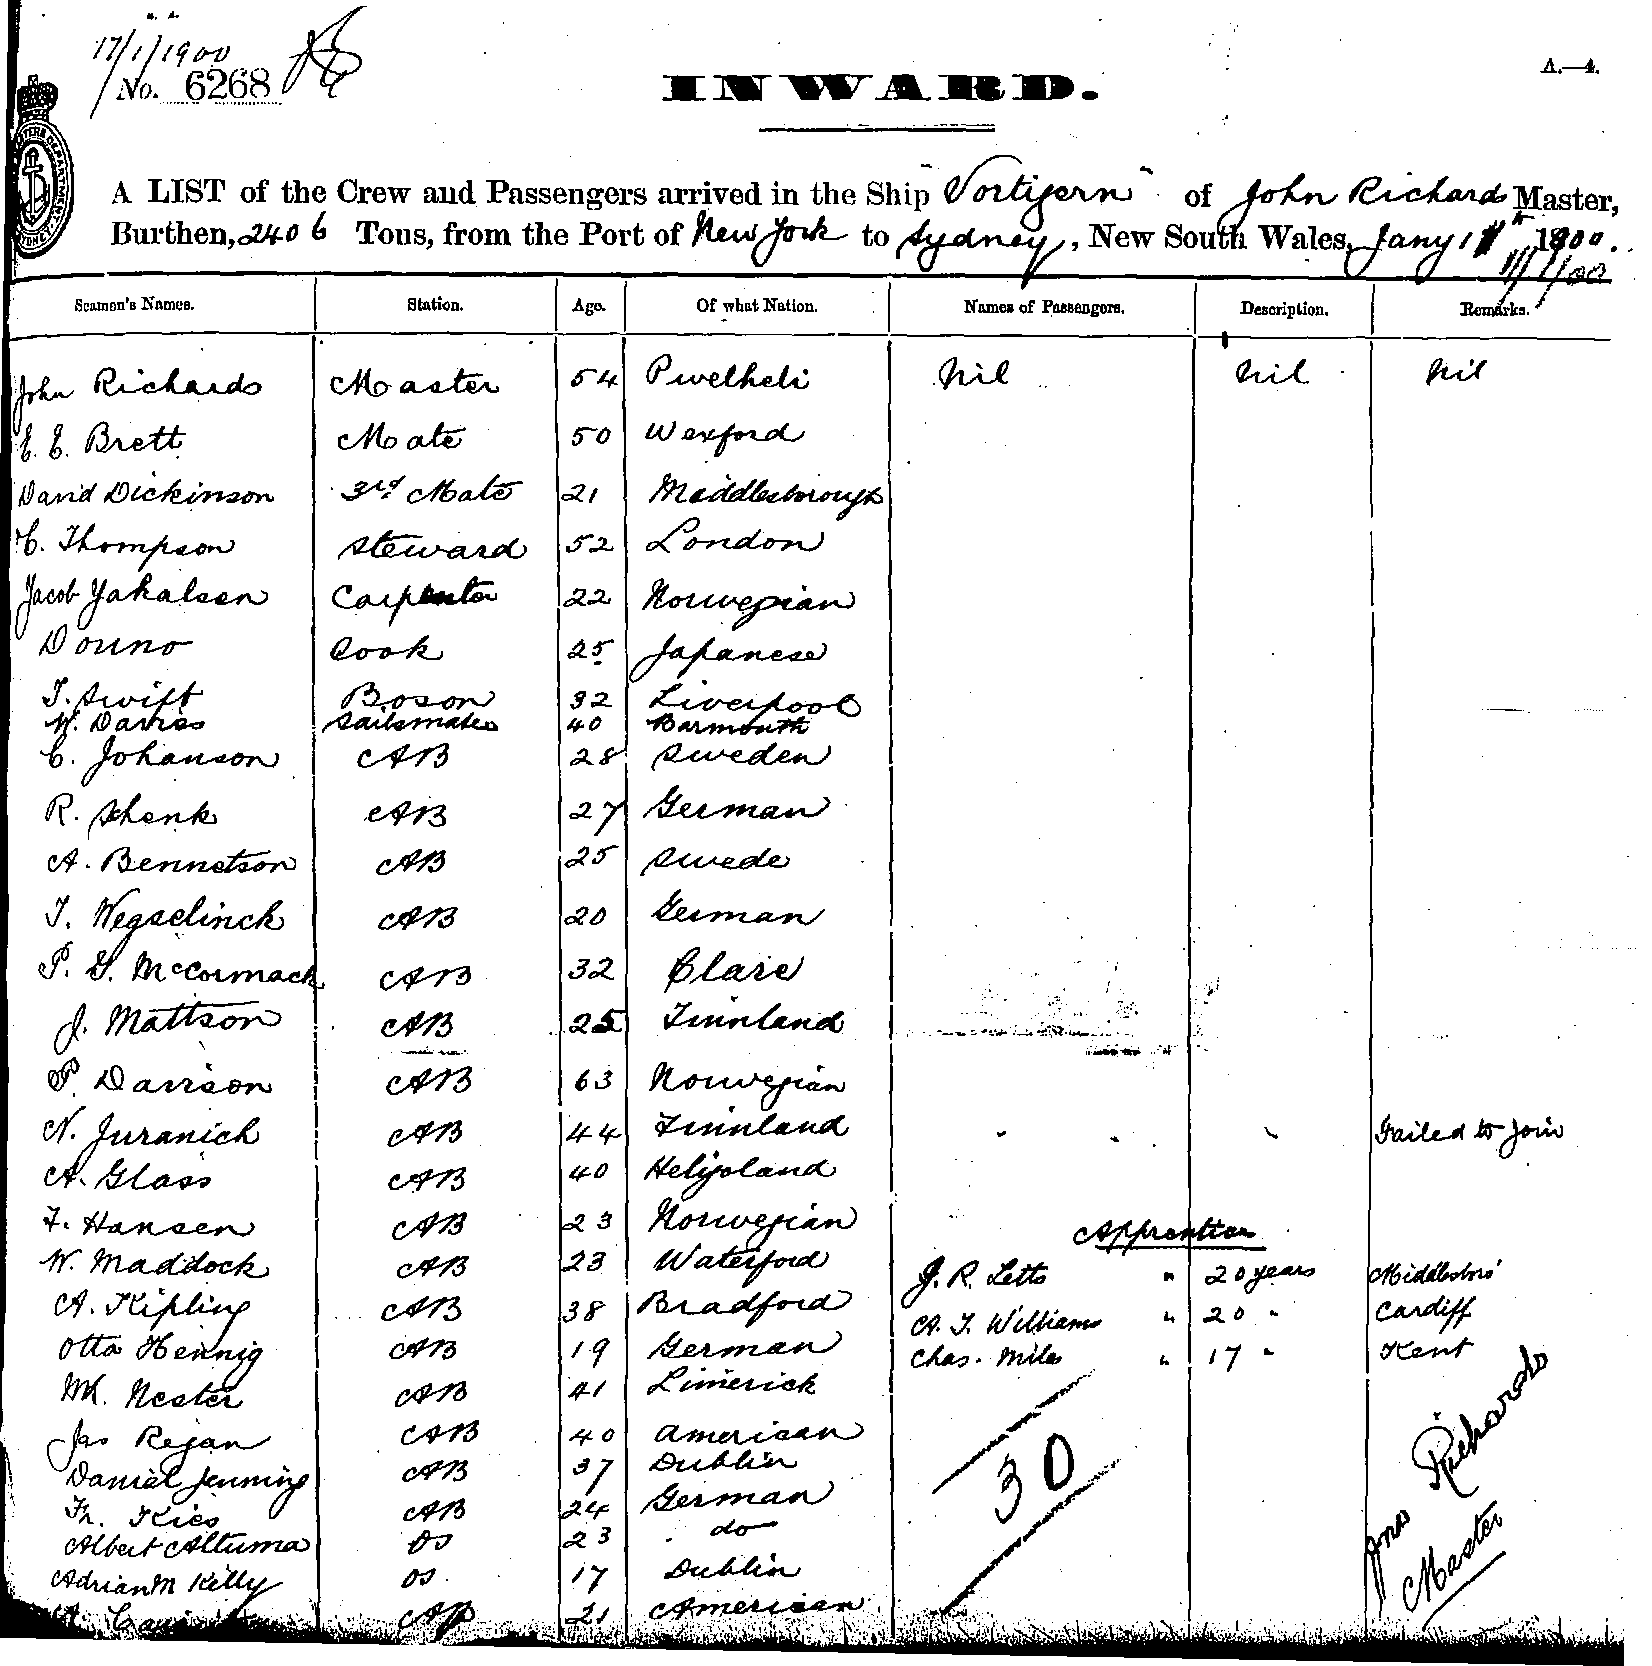 17/1/1900
No. 6268
INWARD.
A.—4.
A LIST of the Crew and Passengers arrived in the Ship "Vortigern" of John Richards Master,
Burthen, 2406 Tons, from the Port of New York to Sydney, New South Wales, Jany 1900.
Seamen's Names. Station. Age. Of what Nation. Names of Passengers. Description. Remarks.
John Richards Master 54 Pwelheli Nil Nil Nil
E. E. Brett Mate 50 Wexford
David Dickinson 3rd Mate 21 Middlesborough
C. Thompson Steward 52 London
Jacob Yakalsen Carpenter 22 Norwegian
Douno Cook 25 Japanese
T. Swift Boson 32 Liverpool
W. Davies Sailsmaker 40 Barmouth
C. Johanson AB 28 Sweden
R. Shenk AB 27 German
A. Bennetson AB 25 Swede
T. Wegselinck AB 20 German
P. G. McCormack AB 32 Clare
J. Mattson AB 25 Finnland
P. Davison AB 63 Norwegian
N. Juranich AB 44 Finnland " " " Failed to Join
A. Glass AB 40 Heligoland
F. Hansen AB 23 Norwegian Apprentices
W. Maddock AB 23 Waterford J. R. Letts " 20 years Middlesboro'
A. Kipling AB 38 Bradford A. T. Williams " 20 " Cardiff
Otto Hennig AB 19 German Chas. Miles " 17 " Kent
Nester AB 41 Limerick
Jas Regan AB 40 American
Daniel Jennings AB 37 Dublin 30
Fr. Kies AB 24 German
Albert Altuma OS 23 do
Adrian M Kelly OS 17 Dublin
A. AB 21 American
Jno Richards
Master